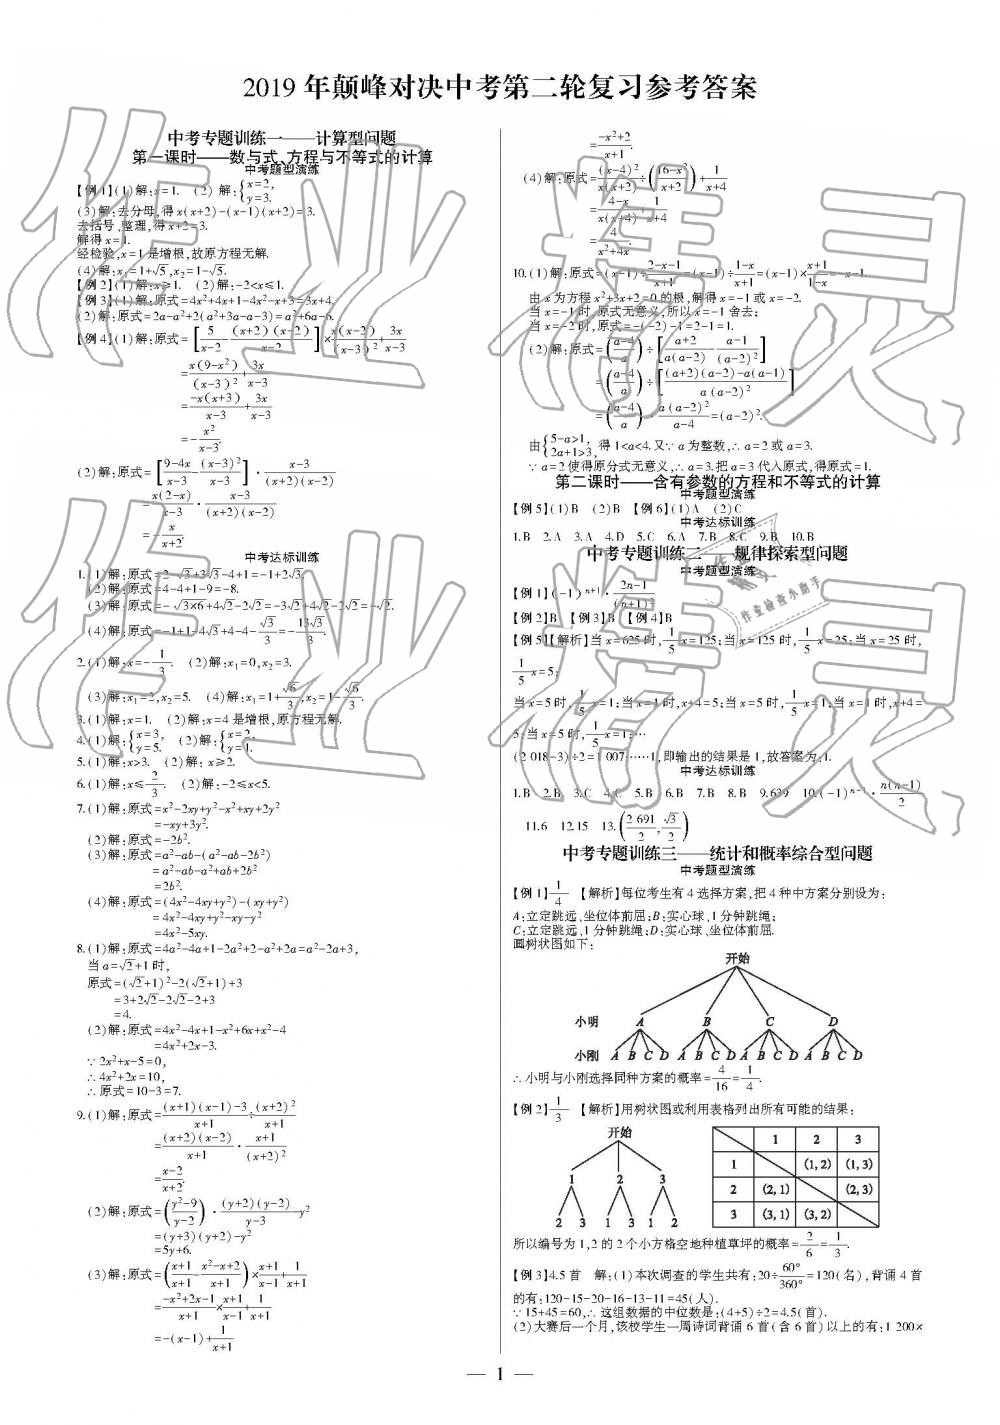 2019 年颠峰对决中考第二轮复习参考答案
中考专题训练一——计算型问题
第一课时——数与式、方程与不等式的计算
中考题型演练
【例 1】(1)解:x=1. (2) 解:{x=2, y=3.
(3)解:去分母,得 x(x+2)-(x-1)(x+2)=3.
去括号、整理,得 x+2=3.
解得 x=1.
经检验,x=1 是增根,故原方程无解.
(4)解:x₁=1+√5,x₂=1-√5.
【例 2】(1)解:x≥1. (2)解:-2<x≤1.
【例 3】(1)解:原式=4x²+4x+1-4x²-x+3=3x+4.
(2)解:原式=2a-a²+2(a²+3a-a-3)=a²+6a-6.
【例 4】(1)解:原式=[5/(x-2)-(x+2)(x-2)/(x-2)]×x(x-2)/(x-3)²+3x/(x-3)
=x(9-x²)/(x-3)²+3x/(x-3)
=-x(x+3)/(x-3)+3x/(x-3)
=-x²/(x-3).
(2)解:原式=[(9-4x)/(x-3)-(x-3)²/(x-3)]·(x-3)/((x+2)(x-2))
=x(2-x)/(x-3)·(x-3)/((x+2)(x-2))
=-x/(x+2).
中考达标训练
1.(1)解:原式=2-√3+3√3-4+1=-1+2√3.
(2)解:原式=4-4+1-9=-8.
(3)解:原式=-√3×6+4√2-2√2=-3√2+4√2-2√2=-√2.
(4)解:原式=-1+1-4√3+4-4-√3/3=-13√3/3.
2.(1)解:x=-1/3. (2)解:x₁=0,x₂=3.
(3)解:x₁=2,x₂=5. (4)解:x₁=1+√6/3,x₂=1-√6/3.
3.(1)解:x=1. (2)解:x=4 是增根,原方程无解.
4.(1)解:{x=3, y=5. (2)解:{x=2, y=1.
5.(1)解:x>3. (2)解:x≥2.
6.(1)解:x≤2/3. (2)解:-2≤x<5.
7.(1)解:原式=x²-2xy+y²-x²+xy+2y²
=-xy+3y².
(2)解:原式=-2b².
(3)解:原式=a²-ab-(a²-ab-2b²)
=a²-ab-a²+ab+2b²
=2b².
(4)解:原式=(4x²-4xy+y²)-(xy+y²)
=4x²-4xy+y²-xy-y²
=4x²-5xy.
8.(1)解:原式=4a²-4a+1-2a²+2-a²+2a=a²-2a+3,
当 a=√2+1 时,
原式=(√2+1)²-2(√2+1)+3
=3+2√2-2√2-2+3
=4.
(2)解:原式=4x²-4x+1-x²+6x+x²-4
=4x²+2x-3.
∵2x²+x-5=0,
∴4x²+2x=10,
∴原式=10-3=7.
9.(1)解:原式=((x+1)(x-1)-3)/(x+1)÷(x+2)²/(x+1)
=(x+2)(x-2)/(x+1)·(x+1)/(x+2)²
=(x-2)/(x+2).
(2)解:原式=((y²-9)/(y-2))·(y+2)(y-2)/(y-3)-y²
=(y+3)(y+2)-y²
=5y+6.
(3)解:原式=((x+1)/(x+1)-(x²-x+2)/(x+1))×(x+1)/(x-1)+1/(x+1)
=(-x²+2x-1)/(x+1)×(x+1)/(x-1)+1/(x+1)
=-(x-1)+1/(x+1)
=(-x²+2)/(x+1).
(4)解:原式=(x-4)²/(x(x+2))÷((16-x²)/(x+2))+1/(x+4)
=(4-x)/(x(x+4))+1/(x+4)
=4/(x²+4x).
10.(1)解:原式=(x-1)÷(2-x-1)/(x+1)=(x-1)÷(1-x)/(x+1)=(x-1)×(x+1)/(1-x)=-x-1.
由 x 为方程 x²+3x+2=0 的根,解得 x=-1 或 x=-2.
当 x=-1 时,原式无意义,所以 x=-1 舍去;
当 x=-2 时,原式=-(-2)-1=2-1=1.
(2)解:原式=((a-4)/a)÷[(a+2)/(a(a-2))-(a-1)/(a-2)²]
=((a-4)/a)÷[((a+2)(a-2)-a(a-1))/(a(a-2)²)]
=((a-4)/a)·a(a-2)²/(a-4)=(a-2)².
由{5-a>1, 2a+1>3, 得 1<a<4.又∵a 为整数,∴a=2 或 a=3.
∵a=2 使得原分式无意义,∴a=3.把 a=3 代入原式,得原式=1.
第二课时——含有参数的方程和不等式的计算
中考题型演练
【例 5】(1)B (2)B 【例 6】(1)A (2)C
中考达标训练
1.B 2.A 3.A 4.D 5.C 6.A 7.B 8.C 9.B 10.B
中考专题训练二——规律探索型问题
中考题型演练
【例 1】(-1)ⁿ⁺¹·(2n-1)/(n+1)²
【例 2】B 【例 3】B 【例 4】B
【例 5】1【解析】当 x=625 时,1/5 x=125;当 x=125 时,1/5 x=25;当 x=25 时,
1/5 x=5;
当 x=5 时,1/5 x=1;当 x=1 时,x+4=5;当 x=5 时,1/5 x=1;当 x=1 时,x+4=
5;当 x=5 时,1/5 x=1;…
(2 018-3)÷2=1 007……1,即输出的结果是 1,故答案为:1.
中考达标训练
1.B 2.B 3.C 4.C 5.B 6.B 7.B 8.B 9.639 10.(-1)ⁿ⁻¹·n(n-1)/2
11.6 12.15 13.(2 691/2,√3/2)
中考专题训练三——统计和概率综合型问题
中考题型演练
【例 1】1/4 【解析】每位考生有 4 选择方案,把 4 种中方案分别设为:
A:立定跳远、坐位体前屈;B:实心球、1 分钟跳绳;
C:立定跳远、1 分钟跳绳;D:实心球、坐位体前屈.
画树状图如下:
开始
小明 A B C D
小刚 A B C D A B C D A B C D A B C D
∴小明与小刚选择同种方案的概率=4/16=1/4.
【例 2】1/3 【解析】用树状图或利用表格列出所有可能的结果:
开始
1 2 3
2 3 1 3 1 2
1 2 3
1 (1,2) (1,3)
2 (2,1) (2,3)
3 (3,1) (3,2)
所以编号为 1,2 的 2 个小方格空地种植草坪的概率=2/6=1/3.
【例 3】4.5 首 解:(1)本次调查的学生共有:20÷60°/360°=120(名),背诵 4 首
的有:120-15-20-16-13-11=45(人).
∵15+45=60,∴这组数据的中位数是:(4+5)÷2=4.5(首).
(2)大赛后一个月,该校学生一周诗词背诵 6 首(含 6 首)以上的有:1 200×
— 1 —
作业精灵
作业精灵
作业检查小助手